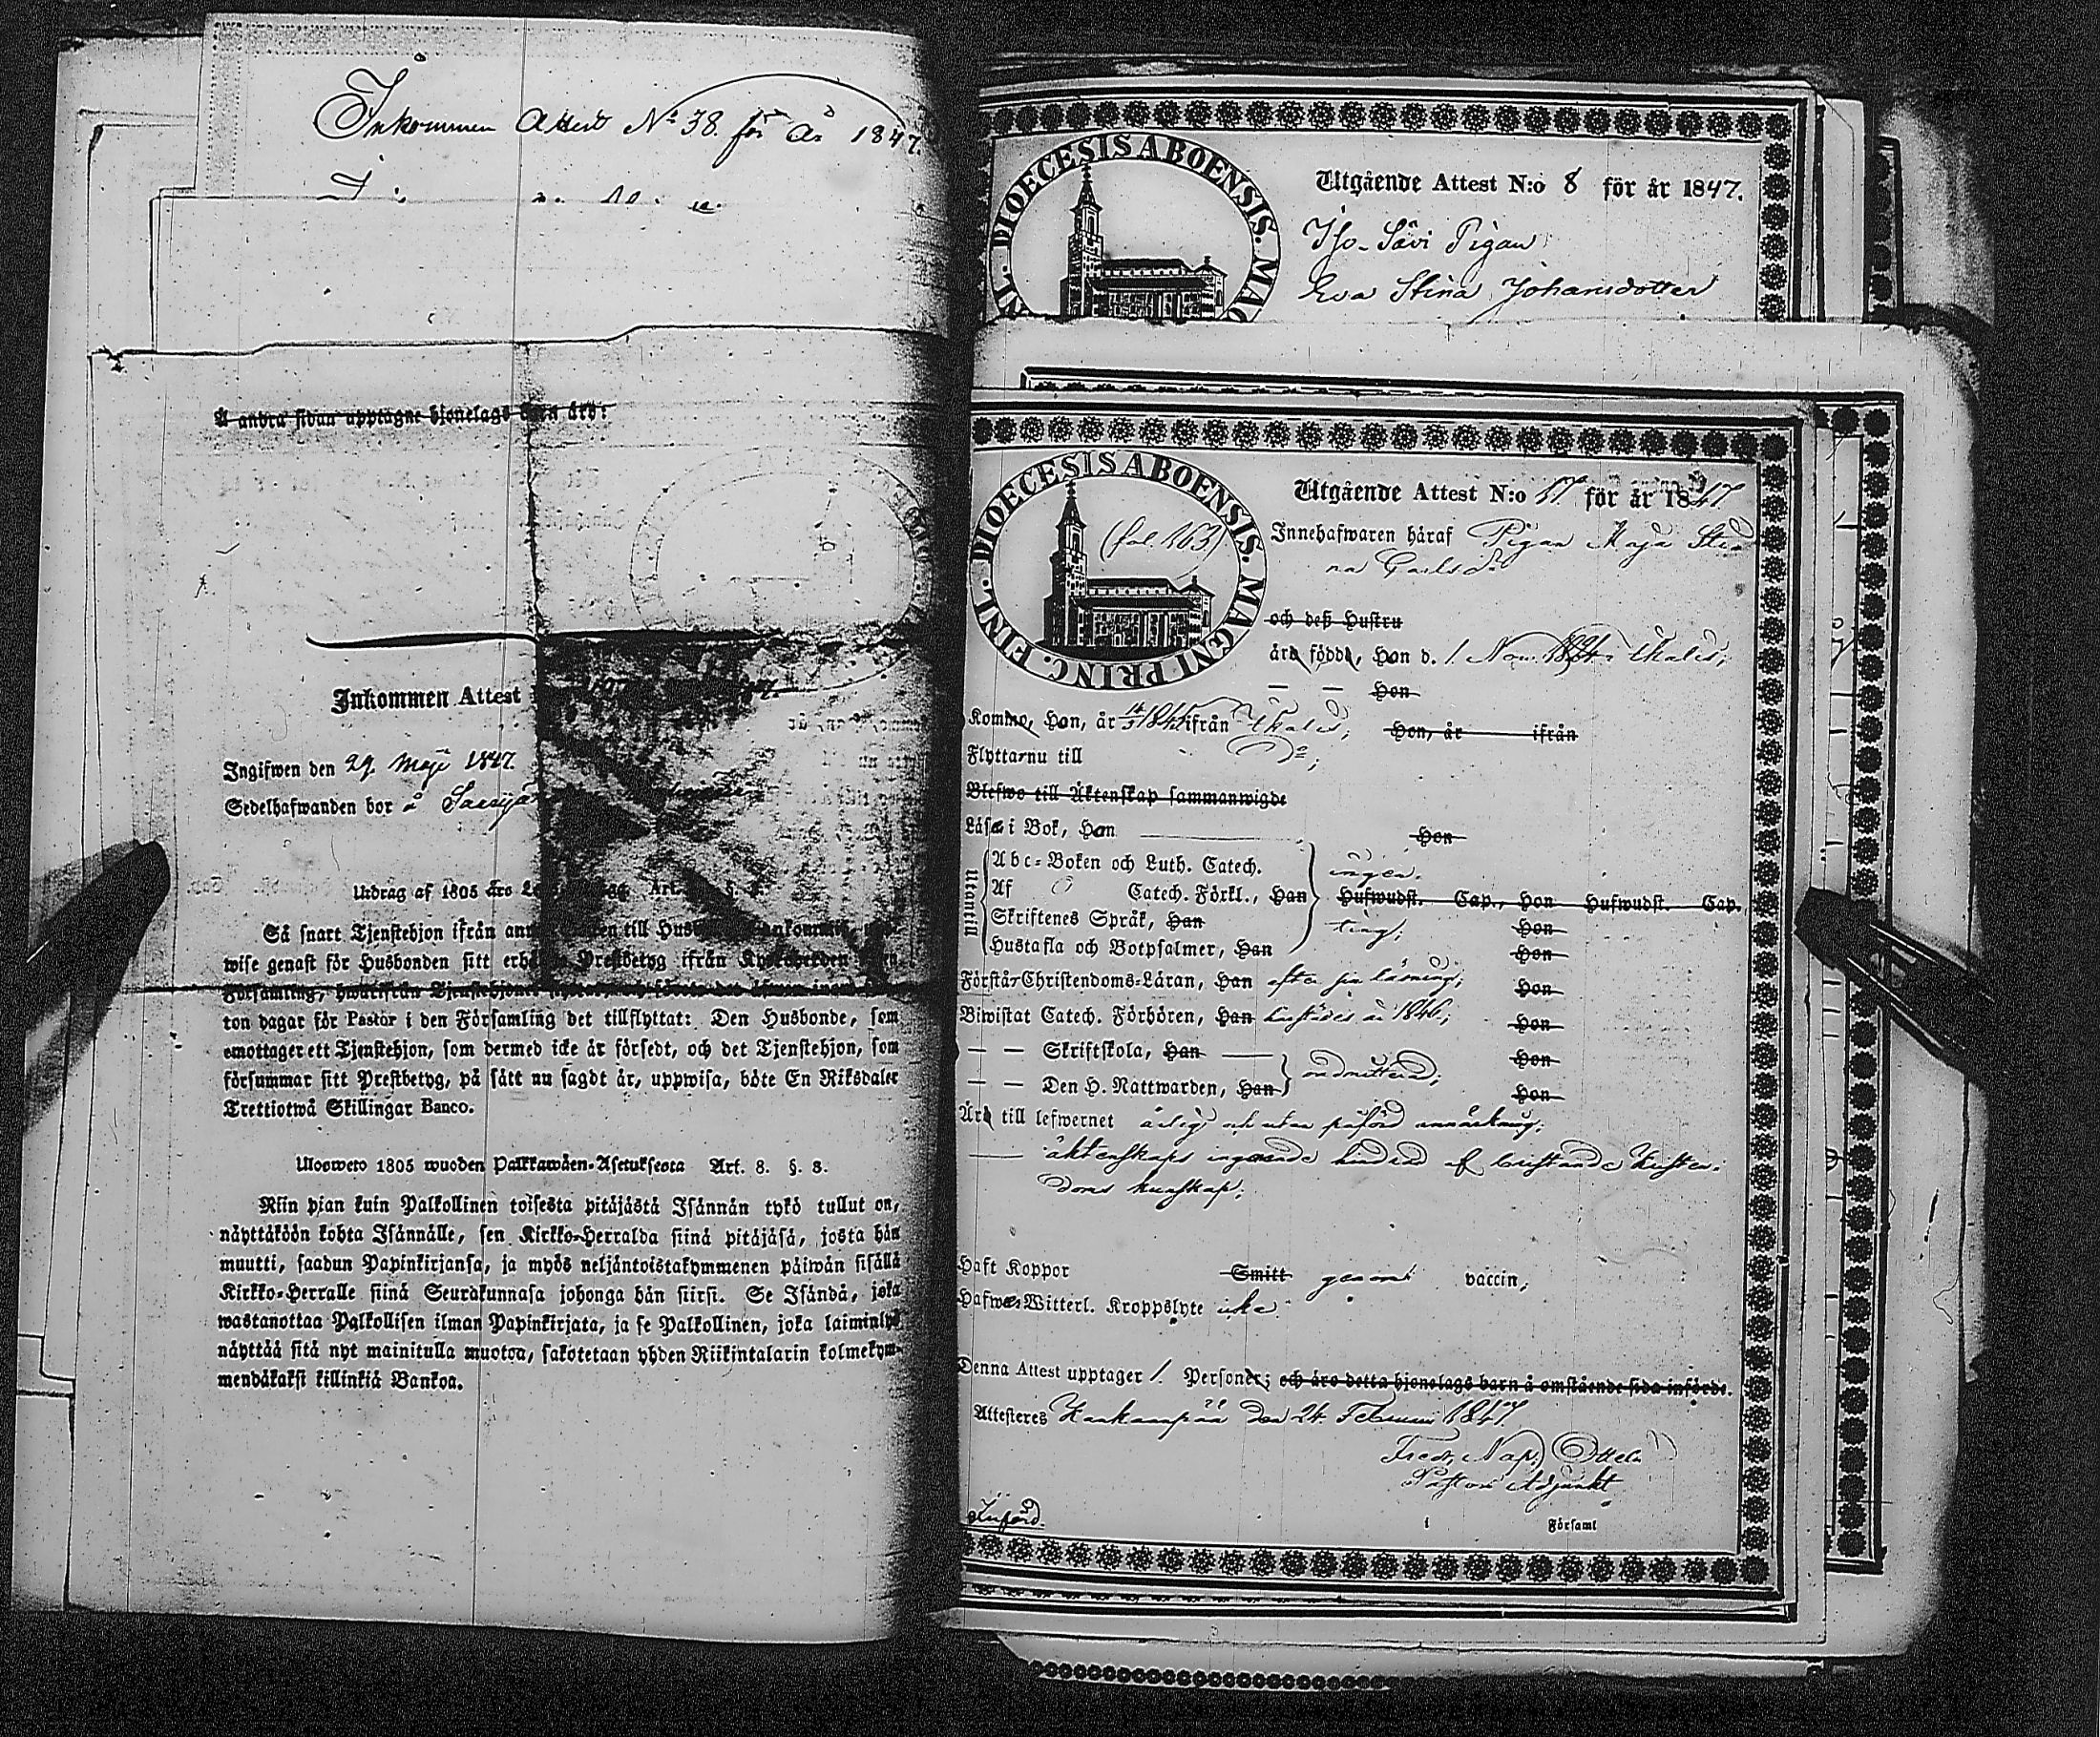 Inkommen Attest No 38. för År 1847.
Å andra sidan upptagne hjonelags barn äro:
Inkommen Attest
Ingifwen den 29. Maji 1847.
Sedelhafwanden bor å
Utdrag af 1805 års Art. 8. §. 8.
Så snart Tjenstehjon ifrån till
wise genast för Husbonden sitt Prestbetyg ifrån Kyrkoherden
Församling, hwarifrån Tjenstehjonet
ton dagar för Pastor i den Församling det tillflyttat: Den Husbonde, som
emottager ett Tjenstehjon, som dermed icke är försedt, och det Tjenstehjon, som
försummar sitt Prestbetyg, på sätt nu sagdt är, uppwisa, böte En Riksdaler
Trettiotwå Skillingar Banco.
Ulosweto 1805 wuoden Palkkawäen-Asetuksesta Art. 8. §. 8.
Niin pian kuin Palkollinen toisesta pitäjästä Isännän tykö tullut on,
näyttäköön kohta Isännälle, sen Kirkko-Herralda siinä pitäjäsä, josta hän
muutti, saadun Papinkirjansa, ja myös neljäntoistakymmenen päiwän sisällä
Kirkko-Herralle siinä Seurakunnasa johonga hän siirsi. Se Isändä, joka
wastanottaa Palkollisen ilman Papinkirjata, ja se Palkollinen, joka laiminlyö
näyttää sitä nyt mainitulla muotoa, sakotetaan yhden Riikintalarin kolmekym-
mendäkaksi killinkiä Bankoa.
DIOECESIS ABOENSIS. MAG
Utgående Attest N:o 8 för år 1847.
Iso-Säwi Pigan
Eva Stina Johansdotter
DIOECESIS ABOENSIS. MAGNI PRINC. FINL.
(fol. 163)
Utgående Attest N:o 57. för år 1847
Innehafwaren häraf Pigan Maja Sti-
na Carlsd:r
och deß Hustru
äro födde, Han d. 1. Nov. Ikalis;
— — Hon
Kommo, Han, år ifrån Ikalis; Hon, år ifrån
Flyttar nu till D:o;
Blefwo till Äktenskap sammanwigde
Läsa i Bok, Han Hon
Utantill
Abc-Boken och Luth. Catech.
Af Catech. Förkl., Han Hufwudst. Cap., Hon Hufwudst. Cap.
Skriftenes Språk, Han Hon
Hustafla och Botpsalmer, Han Hon
ingen-
ting;
Förstår Christendoms-Läran, Han efter sin läsning; Hon
Biwistat Catech. Förhören, Han 1846; Hon
— — Skriftskola, Han Hon
— — Den H. Nattwarden, Han Hon
oadmitterad;
Äro till lefwernet ärlig och utan påförd anmärkning;
äktenskaps ingående hindrad af bristande Kristen-
doms kunskap;
Haft Koppor Smitt genom vaccin;
Hafwa Witterl. Kroppslyte icke
Denna Attest upptager 1. Personer; och äro detta hjonelags barn å omstående sida införde.
Attesteres Kankaanpää den 24. Februari 1847
Fredr. Nap.
Pastors Adjunkt
i Församl
Införd.